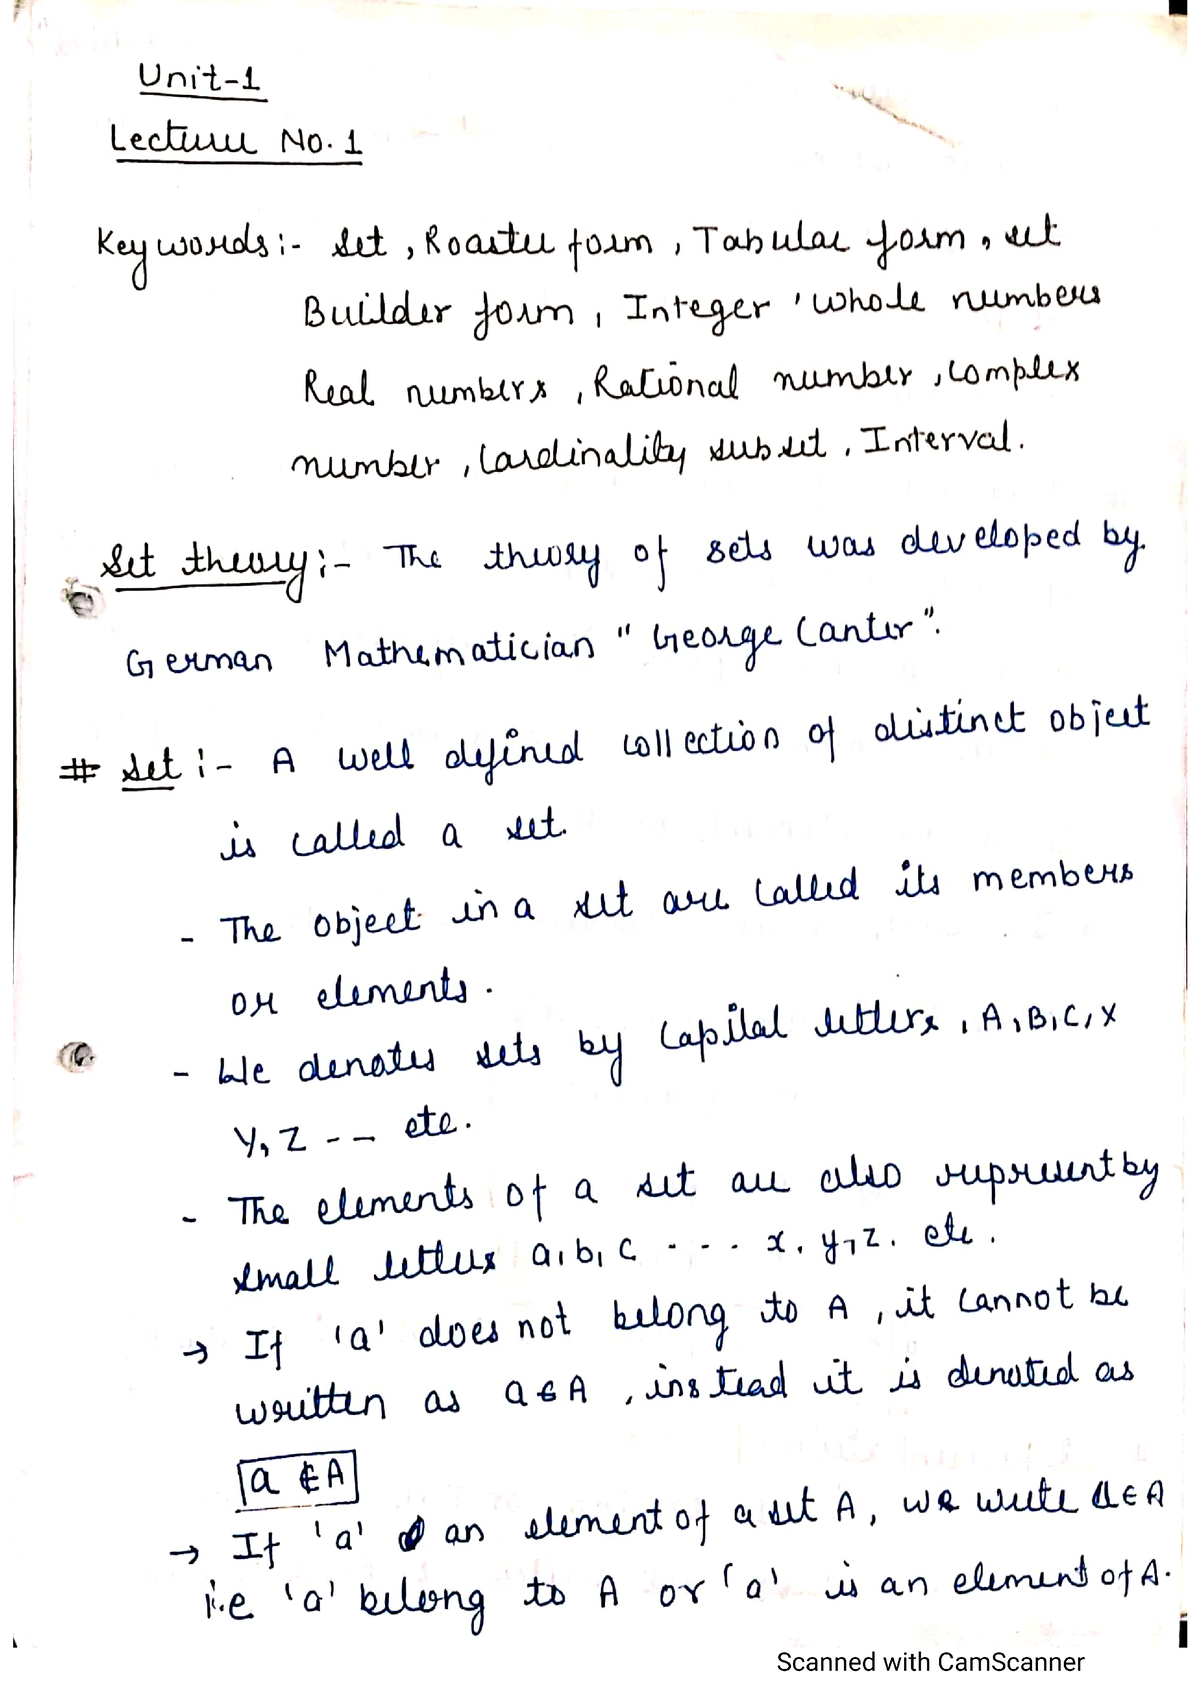 Unit-1
Lecture No. 1
Keywords:- Set, Roaster form, Tabular form, set
Builder form, Integer, whole numbers
Real numbers, Rational number, complex
number, Cardinality subset, Interval.
Set theory:- The theory of sets was developed by
German Mathematician "George Canter".
# Set:- A well defined collection of distinct object
is called a set.
- The object in a set are called its members
or elements.
- We denotes sets by Capital letters, A, B, C, X
Y, Z -- etc.
- The elements of a set are also represent by
small letters a, b, c --- x, y, z. etc.
→ If 'a' does not belong to A, it cannot be
written as a ∈ A, instead it is denoted as
a ∉ A
→ If 'a' an element of a set A, we write a ∈ A
i.e 'a' belong to A or 'a' is an element of A.
Scanned with CamScanner